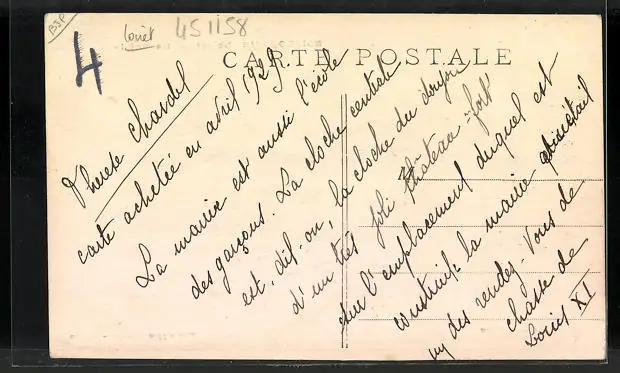 BJP
Loiret 451158
4
CARTE POSTALE
Thérèse Chardel
carte achetée en avril 1929
La mairie est aussi l'école
des garçons. La cloche centrale
est, dit-on, la cloche du donjon
d'un très joli château-fort
sur l'emplacement duquel est
construite la mairie. était
un des rendez-vous de
chasse de
Louis XI